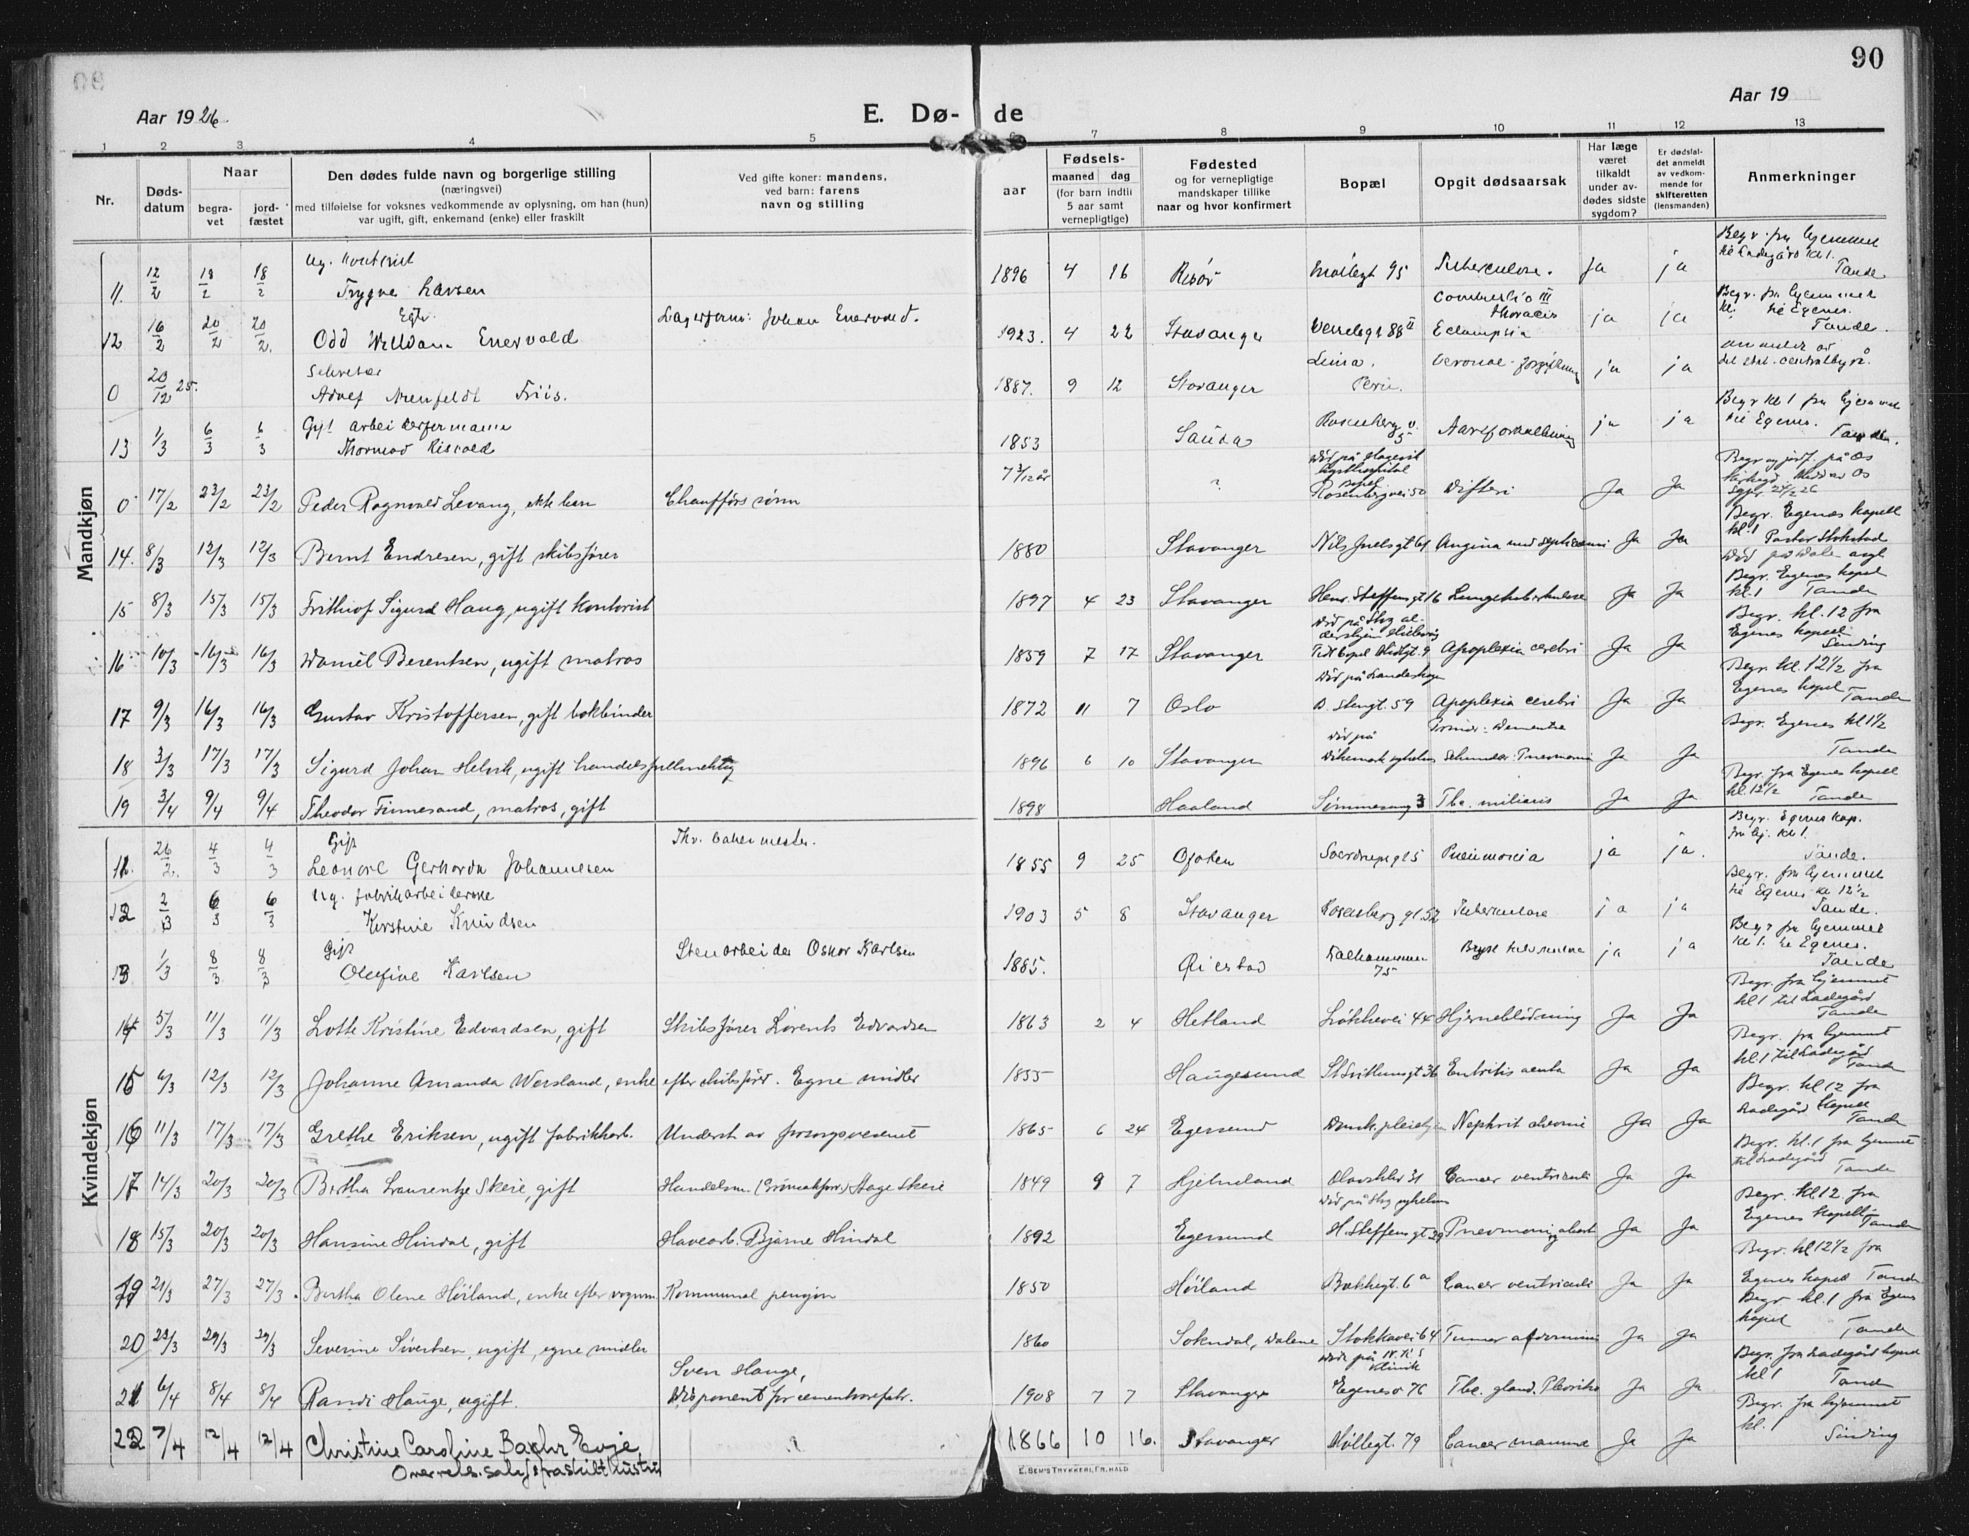 90
Aar 1926.
E. Dø- de
Aar 19
1 2 3 4 5 6 7 8 9 10 11 12 13
Nr.
Døds-
datum
Naar
begra-
vet
jord-
fæstet
Den dødes fulde navn og borgerlige stilling
(næringsvei)
med tilføielse for voksnes vedkommende av oplysning, om han (hun)
var ugift, gift, enkemand (enke) eller fraskilt
Ved gifte koner: mandens,
ved barn: farens
navn og stilling
aar
Fødsels-
maaned dag
(for barn indtil
5 aar samt
vernepligtige)
Fødested
og for vernepligtige
mandskaper tillike
naar og hvor konfirmert
Bopæl
Opgit dødsaarsak
Har læge
været
tilkaldt
under av-
dødes sidste
sygdom?
Er dødsfal-
det anmeldt
av vedkom-
mende for
skifteretten
(lensmanden)
Anmerkninger
Mandkjøn
Ug. kontorist Begr. fra hjemmet
11. 12/2 18/2 18/2 Trygve Larsen 1896 4 16 Risør 95 Tuberculose. ja ja Tande
Egte Lagerform: Johan Enervold. Combustio III thoracis Begr. fra hjemmet
12 16/2 20/2 20/2. Odd William Enervold 1923. 4 22 Stavanger 88 II Eclampsia ja ja Tande.
Sekretær Lima. anmeldt av
0 20/12 25. Friis. 1887. 9 12 Stavanger Peru. Veronal-forgiftning ja ja det stat. centralbyrå.
Gift arbeidsformann Begr kl 1 fra hjemmet
13 1/3 6/3 6/3 Thormod Risvold 1853 Sauda Rosenberg v. 5 Aareforkalkning ja ja til Egenes. Tande.
0 17/2 23/2 23/2 Peder Ragnvald Levang, ekte barn Chaufførs sønn 7 3/12 år ? Rosenbergvei 50 Difteri Ja Ja
Begr. Egenes kapell
14. 8/3 12/3 12/3 Bernt Endresen, gift skibsfører 1880 Stavanger Nils Juelsgt 61 Angina med septicæmi Ja Ja kl. 1 Pastor Stokstad
Begr. Egenes kapel
15 8/3 15/3 15/3 Frithiof Sigurd Haug, ugift kontorist 1897 4 23 Stavanger Henr. Steffensgt 16 Lungetuberkulose Ja Ja kl. 1 Tande
Begr. kl. 12 fra
16 10/3 16/3 16/3 Daniel Berentsen, ugift matros 1859 7 17 Stavanger Apoplexia cerebri Ja Ja Egenes kapell Sinding
Begr. kl. 12½ fra
17 9/3 16/3 16/3 Gustav Kristoffersen, gift bokbinder 1872 11 7 Oslo 59 Apoplexia cerebri Ja Ja Egenes kapel Tande
Død på Primær: Dementia Begr. Egenes kl 1½
18 3/3 17/3 17/3 Sigurd Johan Helvik, ugift handelsfullmektig 1896 6 10 Stavanger Dikemark sykehus Sekundær: Pneumonia Ja Ja Tande
Begr. fra Egenes kapell
19 3/4 9/4 9/4 Theodor Finnesand, matros, gift 1898 Haaland Tbc. miliaris Ja Ja kl. 12½ Tande
Kvindekjøn
Gift Thv. bakermester. Begr. Egenes kap.
11. 26/2. 4/3 4/3 Leonore Gerharda Johannesen 1855 9 25 Ofoten Pneumonia ja ja. Tande.
Ug. fabrikarbeiderske Begr. fra hjemmet
12 2/3 6/3 6/3 Kirstine Knudsen 1903 5 8 Stavanger Rosenberg gt. 52 Tuberculose ja ja til Egenes kl 12½ Tande.
Gift Stenarbeider Oskar Karlsen Begr fra hjemmet
13 1/3 8/3 8/3 Olefine Karlsen 1885. Kalhammer 75 ja ja kl 1. til Egenes. Tande
Begr. fra hjemmet
14 5/3 11/3 11/3 Lotte Kristine Edvardsen, gift Skibsfører Lorents Edvardsen 1863 2 4 Hetland Løkkevei 44 Hjerneblødning Ja Ja kl 1 til Ladegård Tande
Begr. fra hjemmet
15 6/3 12/3 12/3 Johanne Amanda Worsland, enke efter skibsfører. Egne midler 1855 Haugesund St Svithunsgt 36 Entritis acuta Ja Ja kl 1 til Ladegård Tande
Begr. kl 12 fra
16 11/3 17/3 17/3 Grethe Eriksen, ugift fabrikkarb. Underst. av forsorgsvesenet 1865 6 24 Egersund Nephrit chronic Ja Ja Ladegård kapell Tande
Begr. kl. 1 fra hjemmet
17 14/3 20/3 20/3 Bertha Laurentze Skeie, gift Handelsm. Aage Skeie 1849 9 7 Hjelmeland Olavskleiv 31 Cancer ventriculi Ja Ja til Ladegård Tande
Død på Stvg sykehus Begr. kl. 12 fra
18 15/3 20/3 20/3 Hansine Hindal, gift Havearb. Bjarne Hindal 1892 Egersund H. Steffensgt 29 Pneumoni og abort Ja Ja Egenes kapell Tande
Begr. kl 12½ fra
19 21/3 27/3 27/3. Bertha Olene Høiland, enke efter vognm. Kommunal pensjon 1850 Høiland Bakkegt. 6a Cancer ventriculi Ja Ja Egenes kapell Tande
Begr. kl. 1 fra Egenes
20 23/3 29/3 29/3 Severine Sivertsen, ugift, egne midler 1860 Sokndal, Dalene Stokkavei 64 Tumor abdominis Ja Ja kapel Tande
Sven Hauge, Begr. fra Ladegård kapel
21 6/4 8/4 8/4 Randi Hauge, ugift. Disponent for cementvarefabr. 1908 7 7 Stavanger Egenesv 76 Tbc. gland. Pleuritis Ja Ja kl 1 Tande
Begr. fra hjemmet
22 7/4 12/4 12/4 Christine Caroline Bæhr Evje, 1866 10 16. Stavanger Møllegt. 79 Cancer mamma Ja Ja kl. 1 Sinding
fraskilt hustru
E. SEM'S TRYKKERI, FR. HALD